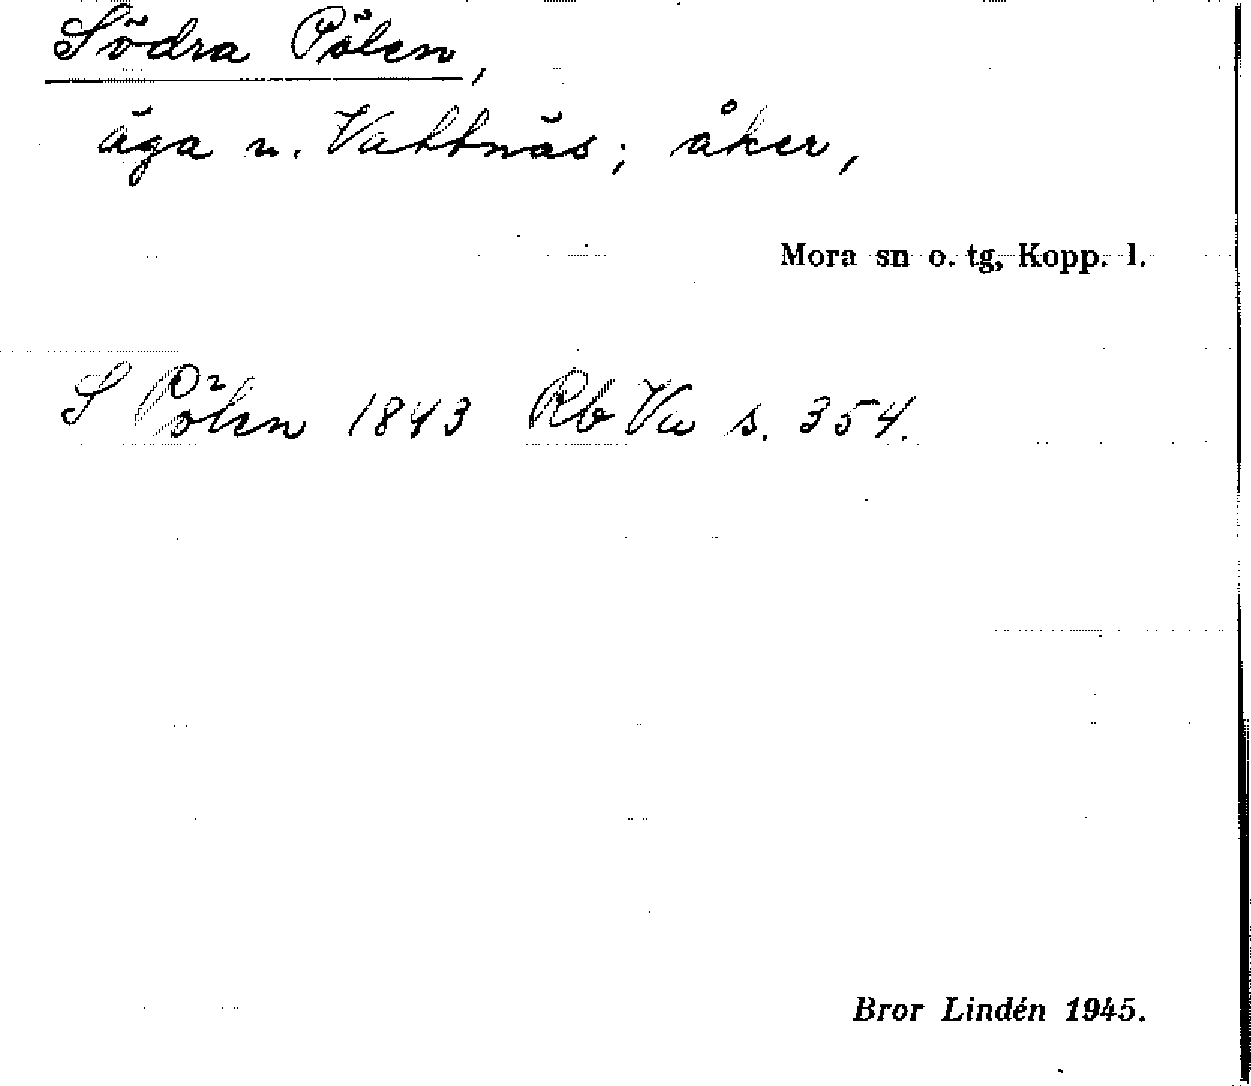 Södra Pölen,
äga u. Vattnäs; åker,
Mora sn o. tg, Kopp. l.
S Pölen 1843 Rb Va s. 354.
Bror Lindén 1945.